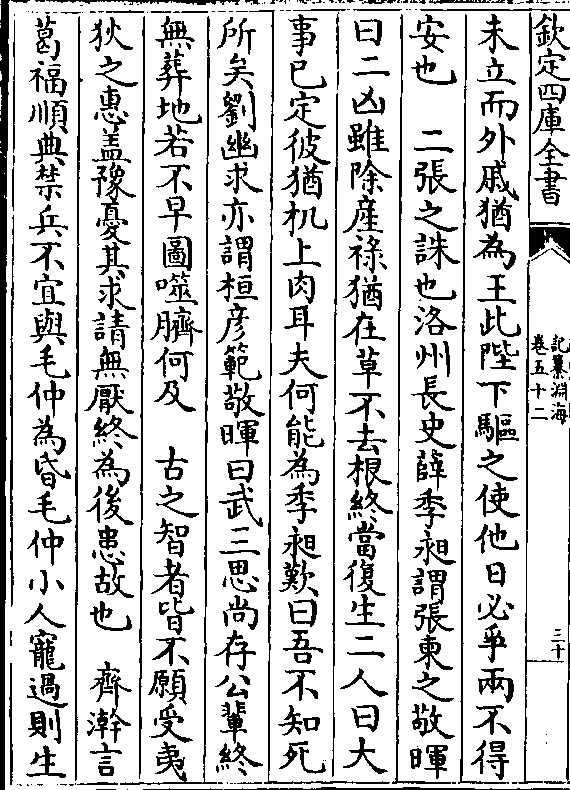 欽定四庫全書
記纂淵海
卷五十二
三十
未立而外戚猶為王此陛下驅之使他日必爭兩不得
安也　二張之誅也洛州長史薛季昶謂張柬之敬暉
曰二凶雖除産祿猶在草不去根終當復生二人曰大
事已定彼猶机上肉耳夫何能為季昶歎曰吾不知死
所矣劉幽求亦謂桓彦範敬暉曰武三思尚存公輩終
無葬地若不早圖噬臍何及　古之智者皆不願受夷
狄之惠盖豫憂其求請無厭終為後患故也　齊澣言
葛福順典禁兵不宜與毛仲為昏毛仲小人寵過則生